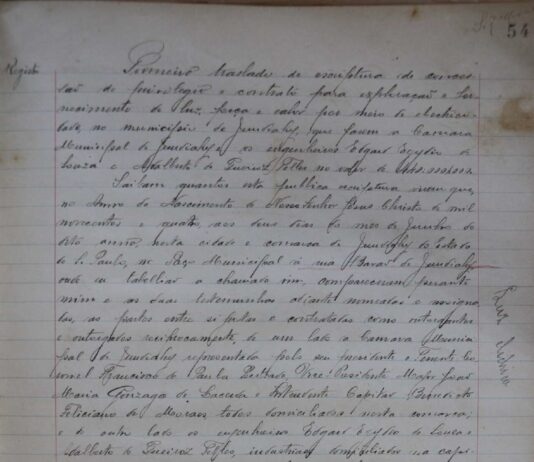 54
Registo
Primeiro traslado de escriptura de conces-
são de privilegio e contrato para exploração e for-
necimento de luz, força e calor por meio de electrici-
dade, no municipio de Jundiahy, que fazem a Camara
Municipal de Jundiahy e os engenheiros Edgard Egydio de
Souza e Adalberto de Queiroz Telles no valor de
Saibam quantos esta publica escriptura virem que,
no Anno do Nascimento de Nosso Senhor Jesus Christo de mil
novecentos e quatro, aos dous dias do mez de Junho do
dito anno, nesta cidade e comarca de Jundiahy do Estado
de S. Paulo, no Paço Municipal á rua Barão de Jundiahy
onde eu tabellião a chamado vim, compareceram perante
mim e as duas testemunhas adiante nomeadas e assigna-
das, as partes entre si justas e contratadas como outorgantes
e outorgados reciprocamente, de um lado a Camara Munici-
pal de Jundiahy representada pelo seu Presidente e Tenente Co-
ronel Francisco de Paula Penteado, Vice-Presidente Major José
Maria Gonzaga de Lacerda e Intendente Capitão Benedicto
Feliciano de Moraes, todos domiciliados nesta comarca;
e de outro lado os engenheiros Edgard Egydio de Souza e
Adalberto de Queiroz Telles, industriaes, domiciliados na capi-
Luz electrica